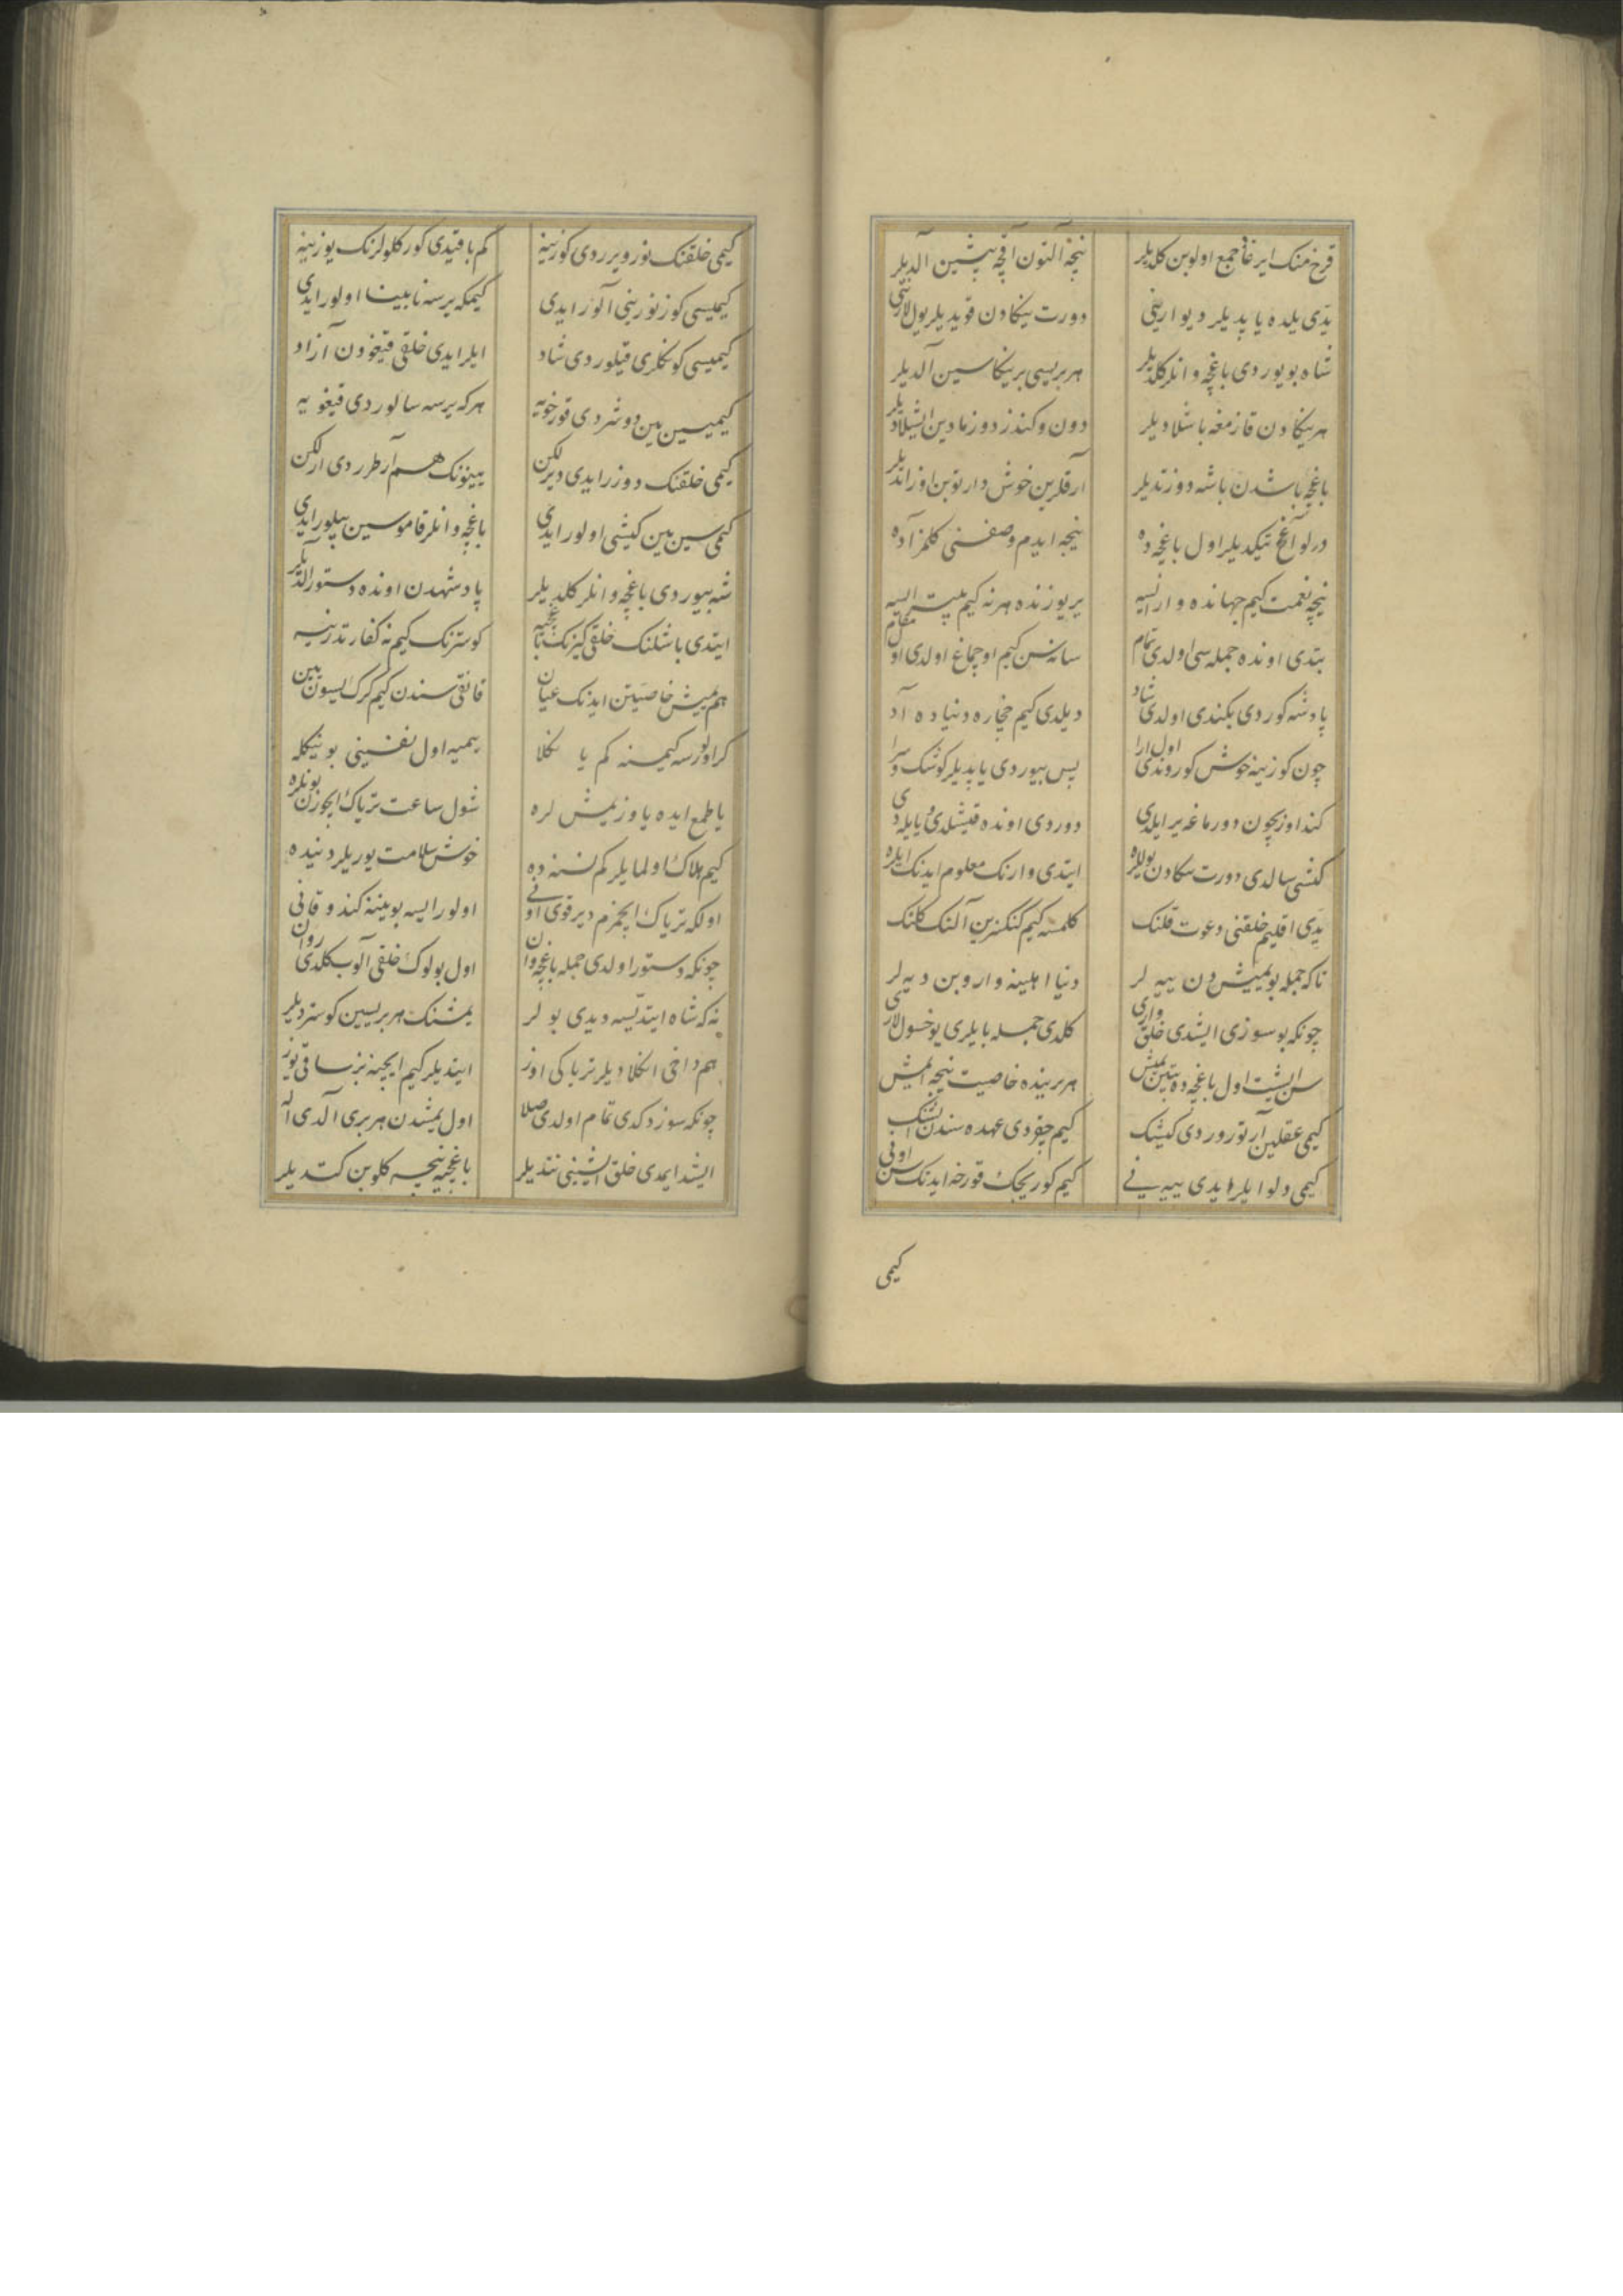 قرخ منک ایرغاد جمع اولوبن کلدیلر نیچه آلتون آقچه پیشین آلدیلر
یدی یلده یاپدیلر دیوارینی دورت ینکادن قویدیلر یول لارینی
شاه بویوردی باغچه وانلر کلدیلر هر بریسی بر ینکاسین آلدیلر
هر ینکادن قازمغه باشلادیلر دون و کندز دورمادین ایشلادیلر
باغچه باشدن باشه دوزتدیلر آرقلرین خوش دارتوبن اوزاتدیلر
درلو آغچ تیکدیلر اول باغچه ده نیجه ایدم وصفنی کلمز آده
نیچه نعمت کیم جهانده وار ایسه یر یوزنده هر نه کیم بیتر ایسه
بتدی اونده جمله سی اولدی تمام سانه سن کیم اوچماغ اولدی او مقام
پادشه کوردی بکندی اولدی شاد دیلدی کیم چخاره دنیاده آد
چون کوزینه خوش کوروندی اول ارا پس بیوردی یاپدیلر کوشک و سرا
کند اوزیچون دورماغه یر ایلدی دوردی اونده قیشلدی و یایلدی
کشی سالدی دورت ینکادن یوللره ایتدی وارنک معلوم ایدنک ایلره
یدی اقلیم خلقنی دعوت قلنک کلمسه کیم کنکزین آلنک کلنک
تاکه جمله بو یمیش دن ییه لر دنیا اهلینه واروبن دیه لر
چونکه بو سوزی ایشدی خلق واری کلدی جمله بایلری یوخسول لاری
سن ایشیت اول باغچه ده بیتین یمیش هر برینده خاصیت نیجه ایمش
کیمی عقلین آرتوروردی کیشینک کیم چقردی عهده سندن ایشنک
کیمی دلو ایلر ایدی ییه نی کیم کوریجک قورخه ایدنک سن اونی
کیمی
کیمی خلقنک نور ویرردی کوزینه کم باقیدی کورکلولرنک یوزینه
کیمیسی کوز نورینی آلور ایدی کیمکه یرسه نابینا اولور ایدی
کیمیسی کونکلری قیلوردی شاد ایلر ایدی خلقی قیغودن آزاد
کیمیسین یین دوشردی قورخویه هرکه یرسه سالوردی قیغویه
کیمی خلقنک دوزر ایدی دیرلکن ییینونک هم آرطرردی ارلکن
کیمی سین یین کیشی اولور ایدی باغچه وانلر قاموسین بیلور ایدی
شه بیوردی باغچه وانلر کلدیلر پادشهدن اونده دستور آلدیلر
ایتدی باشلنک خلقی کیزنک باغچیه کوسترنک کیم نه کفار تدر نیه
هم یمیش خاصیتن ایدنک عیان قانقی سندن کیم کرک ایسون یین
کر اولورسه کیمسنه کم یا نکلا ییمیه اول نفسینی بو نیکله
یا طمع ایده یاوز یمیش لره شول ساعت تریاک ایچورن بونلره
کیم هلاک اولمایلر کم نسنه ده خوش سلامت یوریلر دنیده
اولکه تریاک ایچمزم دیر قوی اونی اولور ایسه بوینینه کندو قانی
چونکه دستور اولدی جمله باغچه وان اول بولوک خلقی آلوب کلدی روان
نه که شاه ایتدیسه دیدی بو لر یمشنک هر بریسین کوستردیلر
هم داخی انکلادیلر تریاکی اوز ایتدیلر کیم ایچینه نز ساقی یوز
چونکه سوز دکدی تمام اولدی صلا اول یمشدن هر بری آلدی اله
ایشد ایمدی خلق ایشینی نتدیلر باغچیه نیچه کلوبن کتدیلر